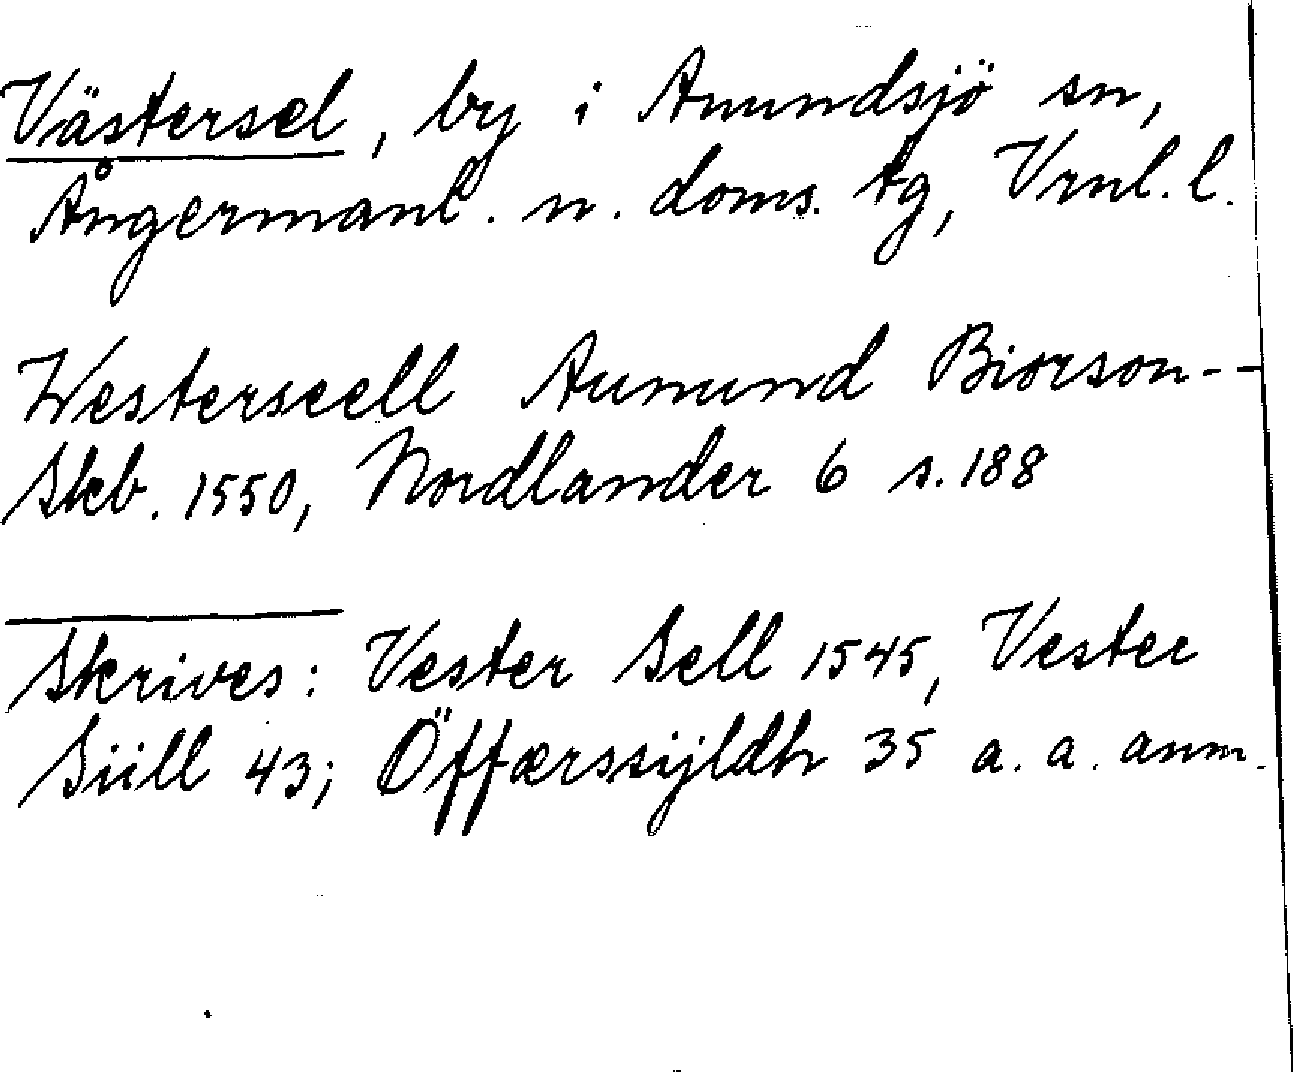 Västersel, by i Anundsjö sn,
Ångermanl. n. doms. tg, Vrnl. l.
Westerseell Aunund Biorson--
Skb. 1550, Nordlander 6 s. 188
Skrives: Vester Sell 1545, Vester
Siill 43; Öffærssijldh 35 a. a. anm.